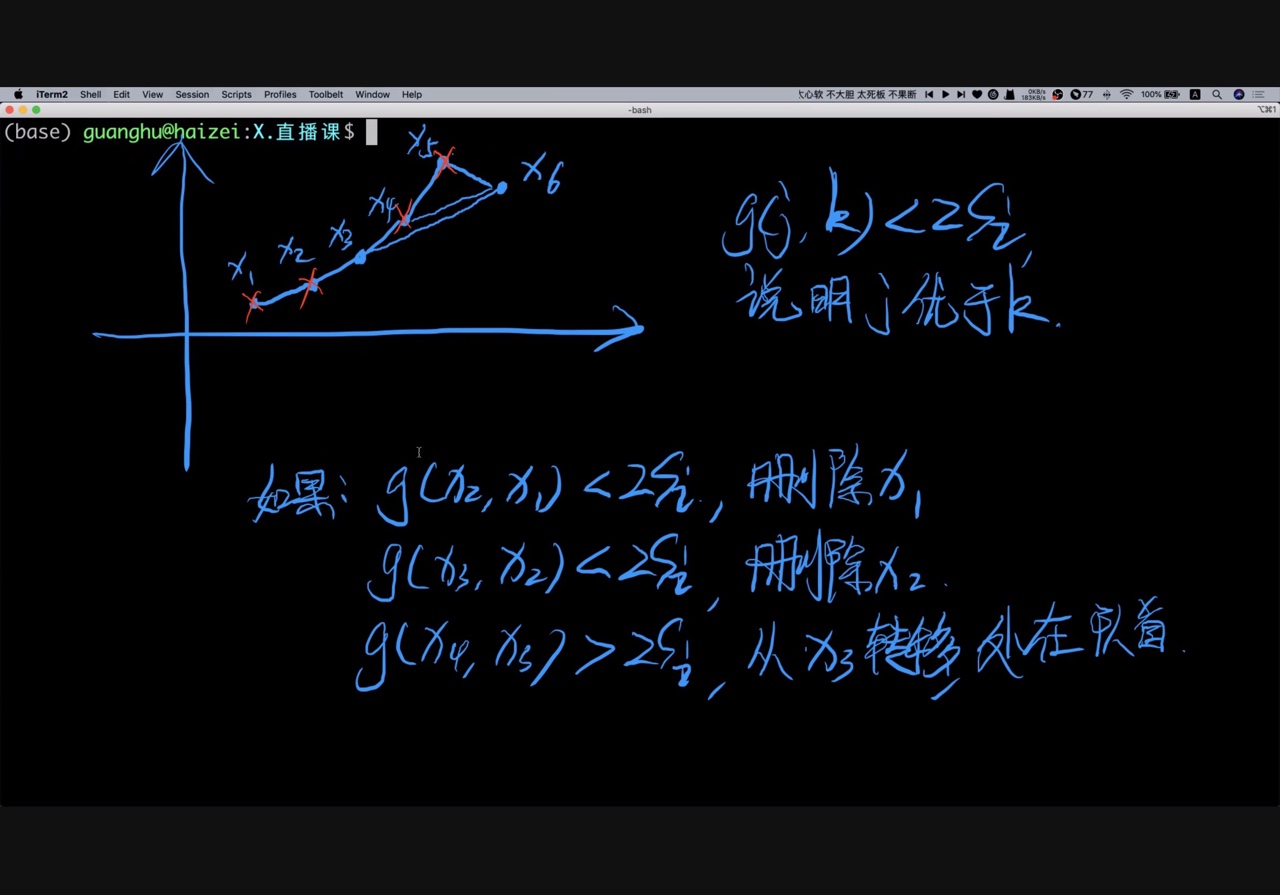 iTerm2 Shell Edit View Session Scripts Profiles Toolbelt Window Help 大心软 不大胆 太死板 不果断 0KB/s 183KB/s 77 100% A
-bash ⌥⌘1
(base) guanghu@haizei:X.直播课$
x5
x6
x4
x3
x2
x1
g(j, k) < 2Si,
说明j优于k.
如果: g(x2, x1) < 2Si, 删除x1
g(x3, x2) < 2Si, 删除x2.
g(x4, x3) > 2Si, 从x3转移, 处在队首.